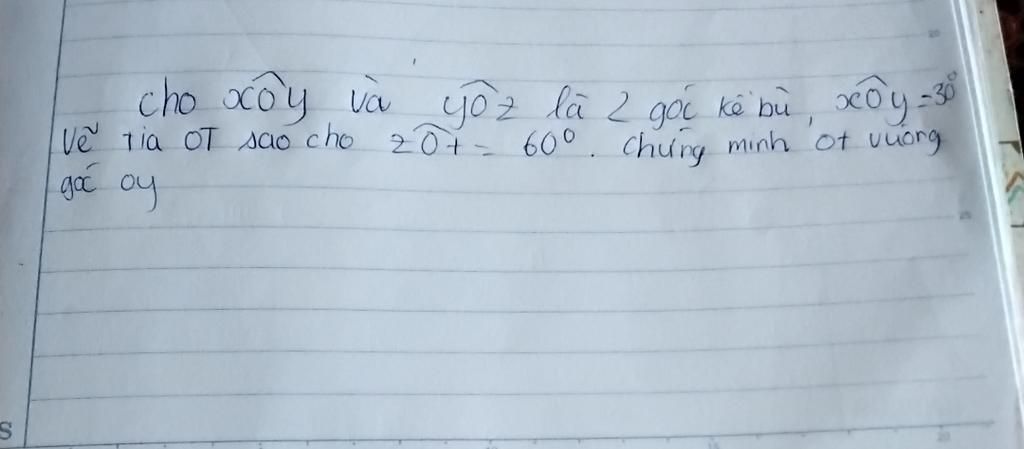 cho xÔy và yÔz là 2 góc kề bù, xÔy = 30°
Vẽ tia OT sao cho zÔt = 60°. Chứng minh ot vuông
góc oy
S
20